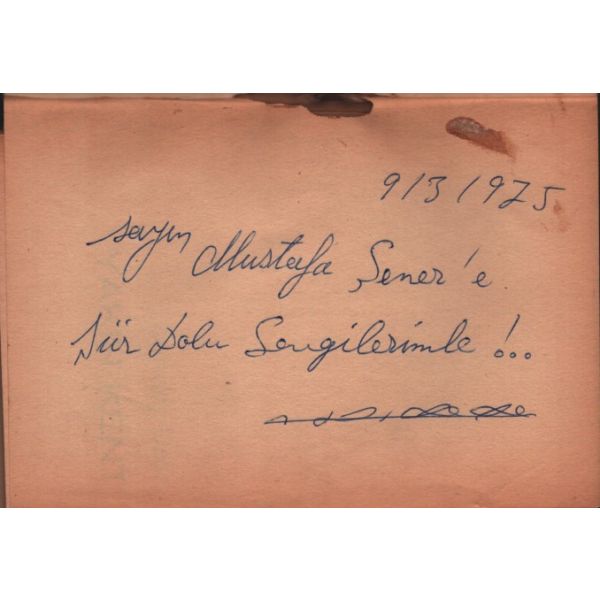 9/3/1975
Sayın
Mustafa Şener'e
Şiir Dolu Sevgilerimle !...